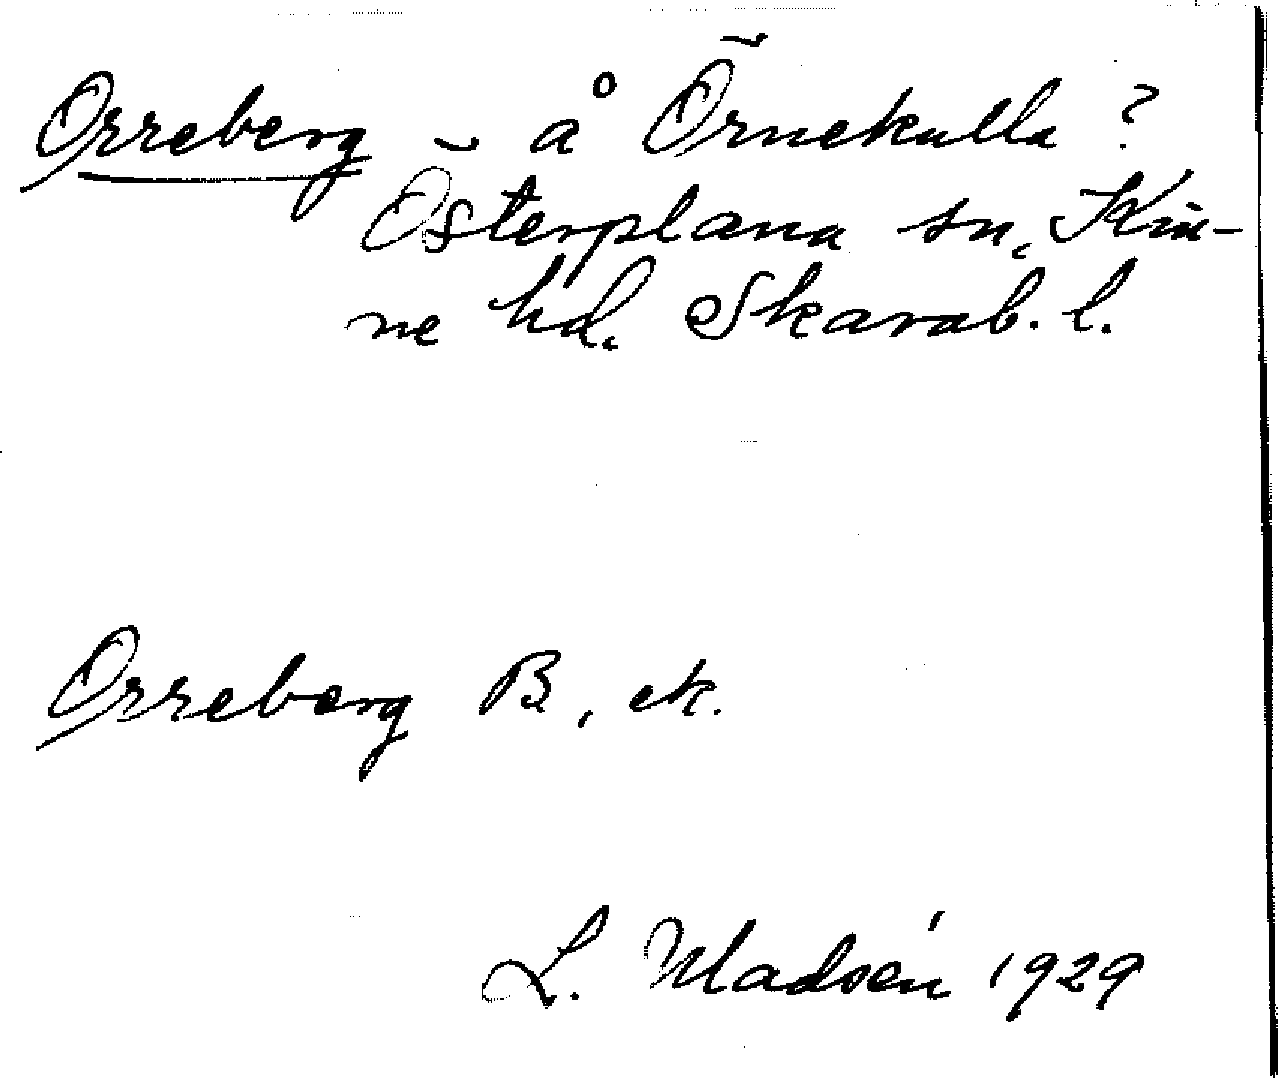 Orreberg å Örnekulla?
Österplana sn, Kin-
ne hd. Skarab. l.
Orreberg B, ek.
L. Madsén 1929